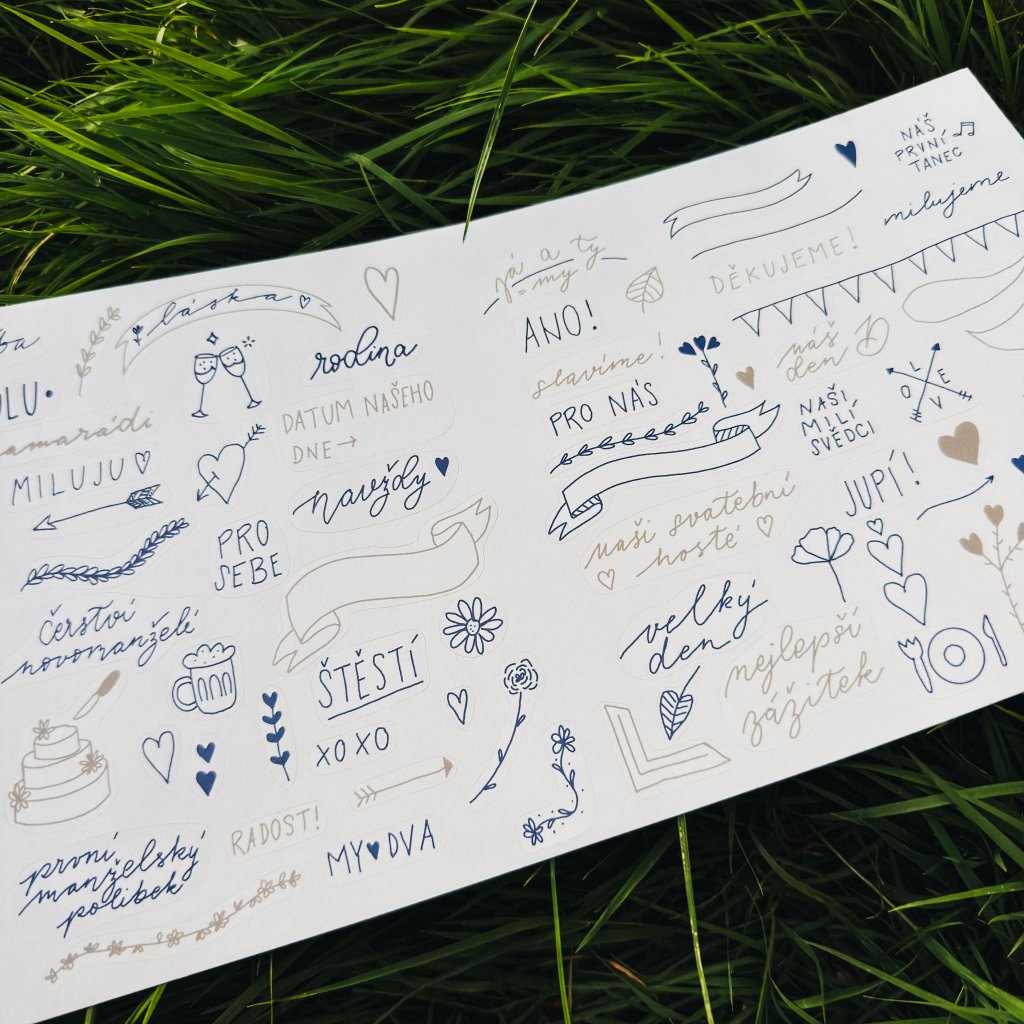 láska
rodina
DATUM NAŠEHO
DNE
MILUJU
navždy
PRO
SEBE
čerství
novomanželé
ŠTĚSTÍ
XOXO
RADOST!
MY DVA
první
manželský
polibek
já a ty
= my
ANO!
slavíme!
PRO NÁS
DĚKUJEME!
NÁŠ
PRVNÍ
TANEC
milujeme
náš
den D
NAŠI
MILÍ
SVĚDCI
LOVE
JUPÍ!
naši svatební
hosté
velký
den
nejlepší
zážitek